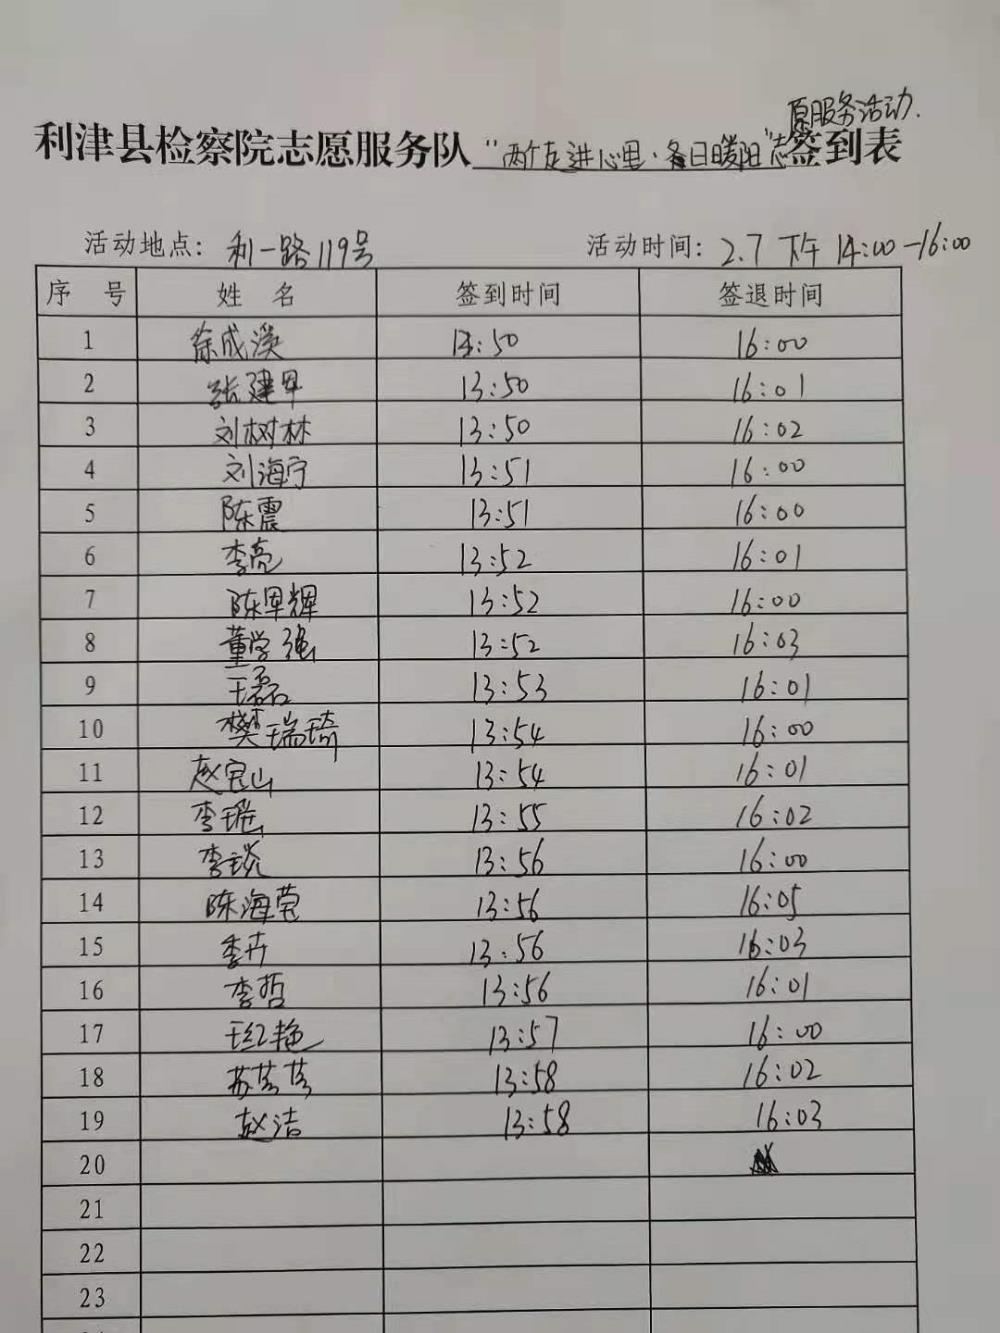 原服务活动.
利津县检察院志愿服务队“两个走进心里·冬日暖阳”志签到表
活动地点: 利一路119号 活动时间: 2.7 下午 14:00-16:00
序 号 姓 名 签到时间 签退时间
1 徐成溪 13:50 16:00
2 张建军 13:50 16:01
3 刘树林 13:50 16:02
4 刘海宁 13:51 16:00
5 陈震 13:51 16:00
6 李亮 13:52 16:01
7 陈军辉 13:52 16:00
8 董学强 13:52 16:03
9 王磊 13:53 16:01
10 樊瑞琦 13:54 16:00
11 赵宝山 13:54 16:01
12 李瑶 13:55 16:02
13 李锬 13:56 16:00
14 陈海莹 13:56 16:05
15 李卉 13:56 16:03
16 李哲 13:56 16:01
17 王红艳 13:57 16:00
18 苏芸芸 13:58 16:02
19 赵洁 13:58 16:03
20
21
22
23